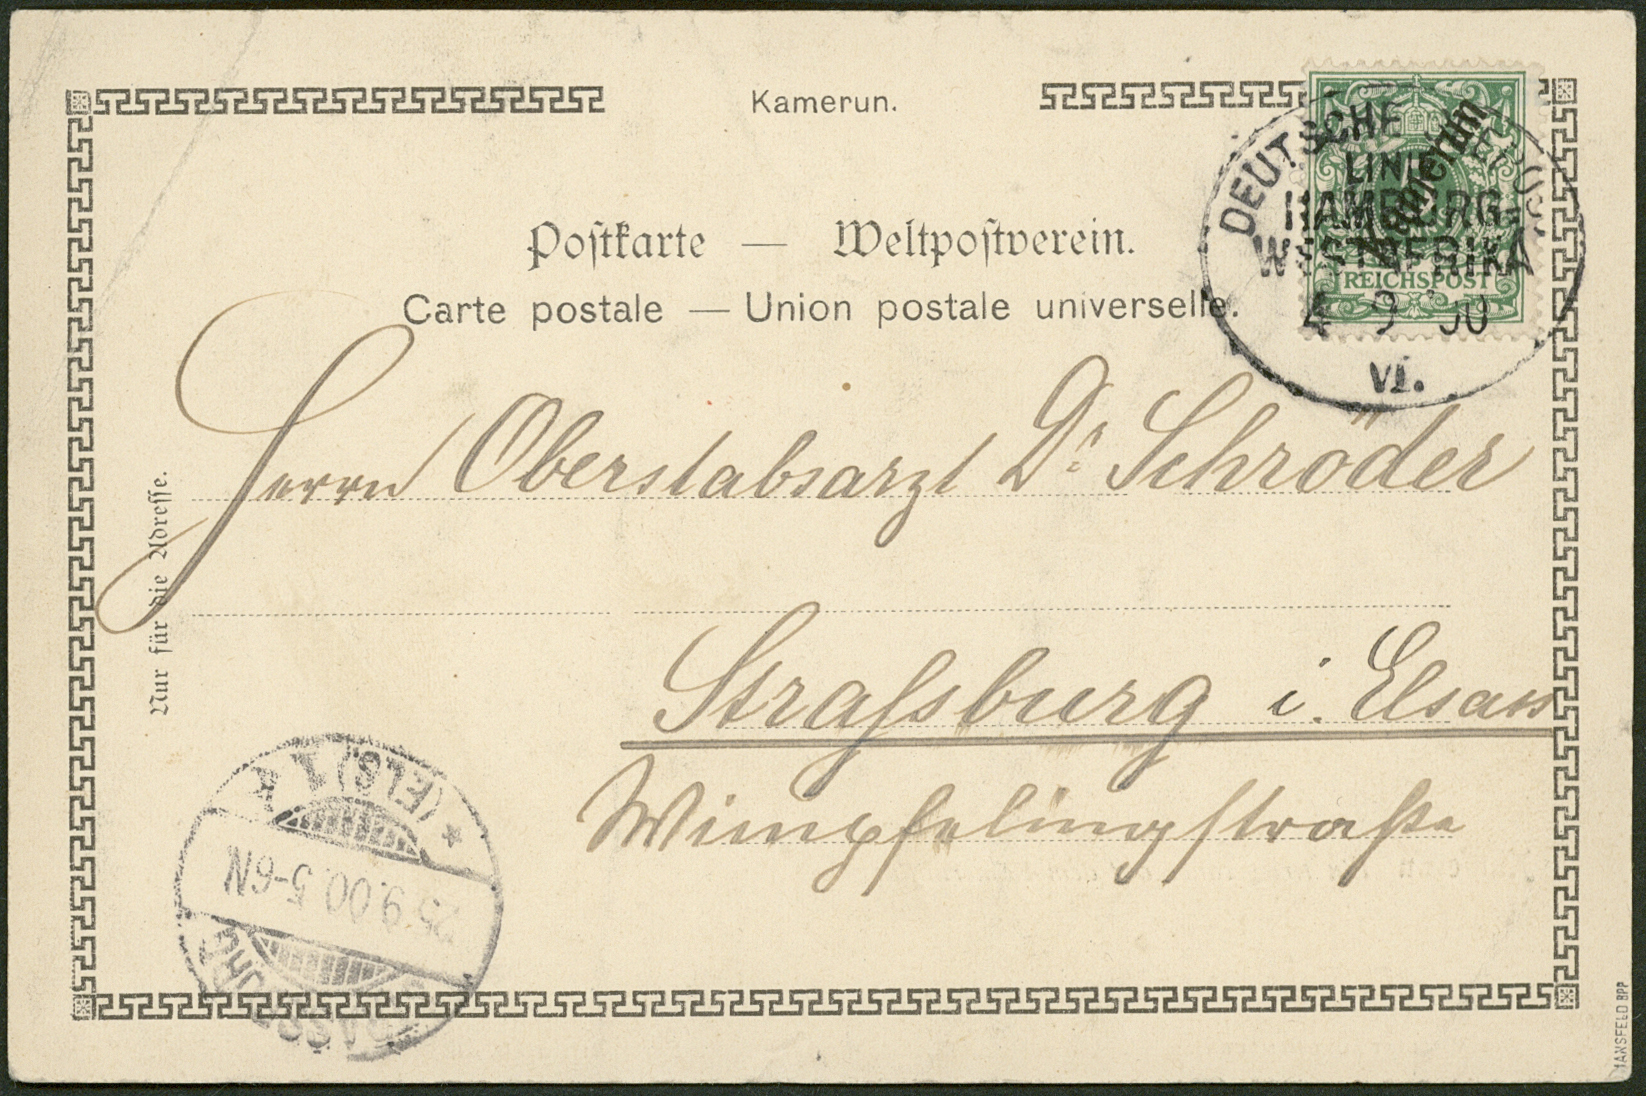 Kamerun.
Postkarte — Weltpostverein.
Carte postale — Union postale universelle.
DEUTSCHE SEEPOST
LINIE
HAMBURG
WESTAFRIKA
4 9 00
VI.
Kamerun
REICHSPOST
Herrn Oberstabsarzt Dr. Schröder
Straſsburg i. Elsass
Wimpfelingstraße
Nur für die Adresse.
STRASSBURG
25.9.00.5-6N
* (ELS) 1 *
MANSFELD BPP